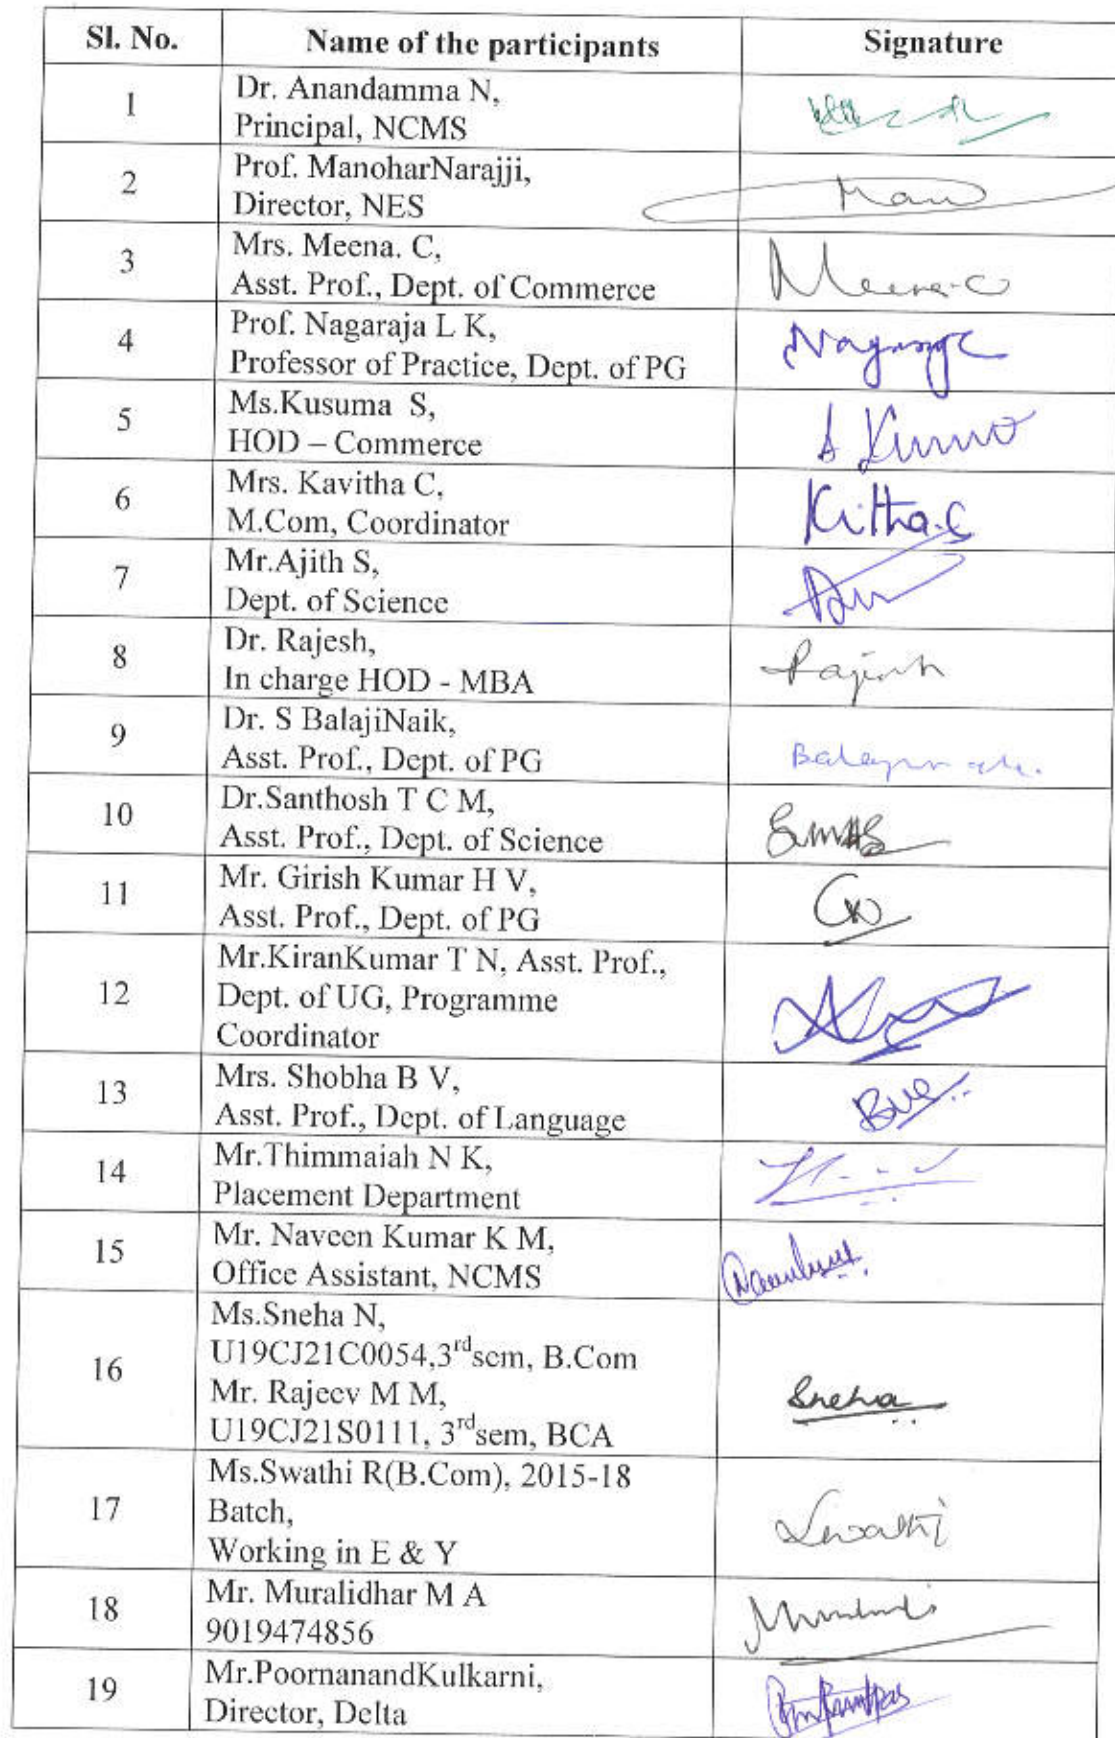 Sl. No. Name of the participants Signature
1 Dr. Anandamma N,
Principal, NCMS
2 Prof. ManoharNarajji,
Director, NES
3 Mrs. Meena. C,
Asst. Prof., Dept. of Commerce
Meena.C
4 Prof. Nagaraja L K,
Professor of Practice, Dept. of PG
5 Ms.Kusuma S,
HOD – Commerce
6 Mrs. Kavitha C,
M.Com, Coordinator
7 Mr.Ajith S,
Dept. of Science
8 Dr. Rajesh,
In charge HOD - MBA
Rajesh
9 Dr. S BalajiNaik,
Asst. Prof., Dept. of PG
10 Dr.Santhosh T C M,
Asst. Prof., Dept. of Science
11 Mr. Girish Kumar H V,
Asst. Prof., Dept. of PG
12 Mr.KiranKumar T N, Asst. Prof.,
Dept. of UG, Programme
Coordinator
13 Mrs. Shobha B V,
Asst. Prof., Dept. of Language
14 Mr.Thimmaiah N K,
Placement Department
15 Mr. Naveen Kumar K M,
Office Assistant, NCMS
16 Ms.Sneha N,
U19CJ21C0054,3rdsem, B.Com
Mr. Rajeev M M,
U19CJ21S0111, 3rdsem, BCA
Sneha
17 Ms.Swathi R(B.Com), 2015-18
Batch,
Working in E & Y
Swathi
18 Mr. Muralidhar M A
9019474856
19 Mr.PoornanandKulkarni,
Director, Delta